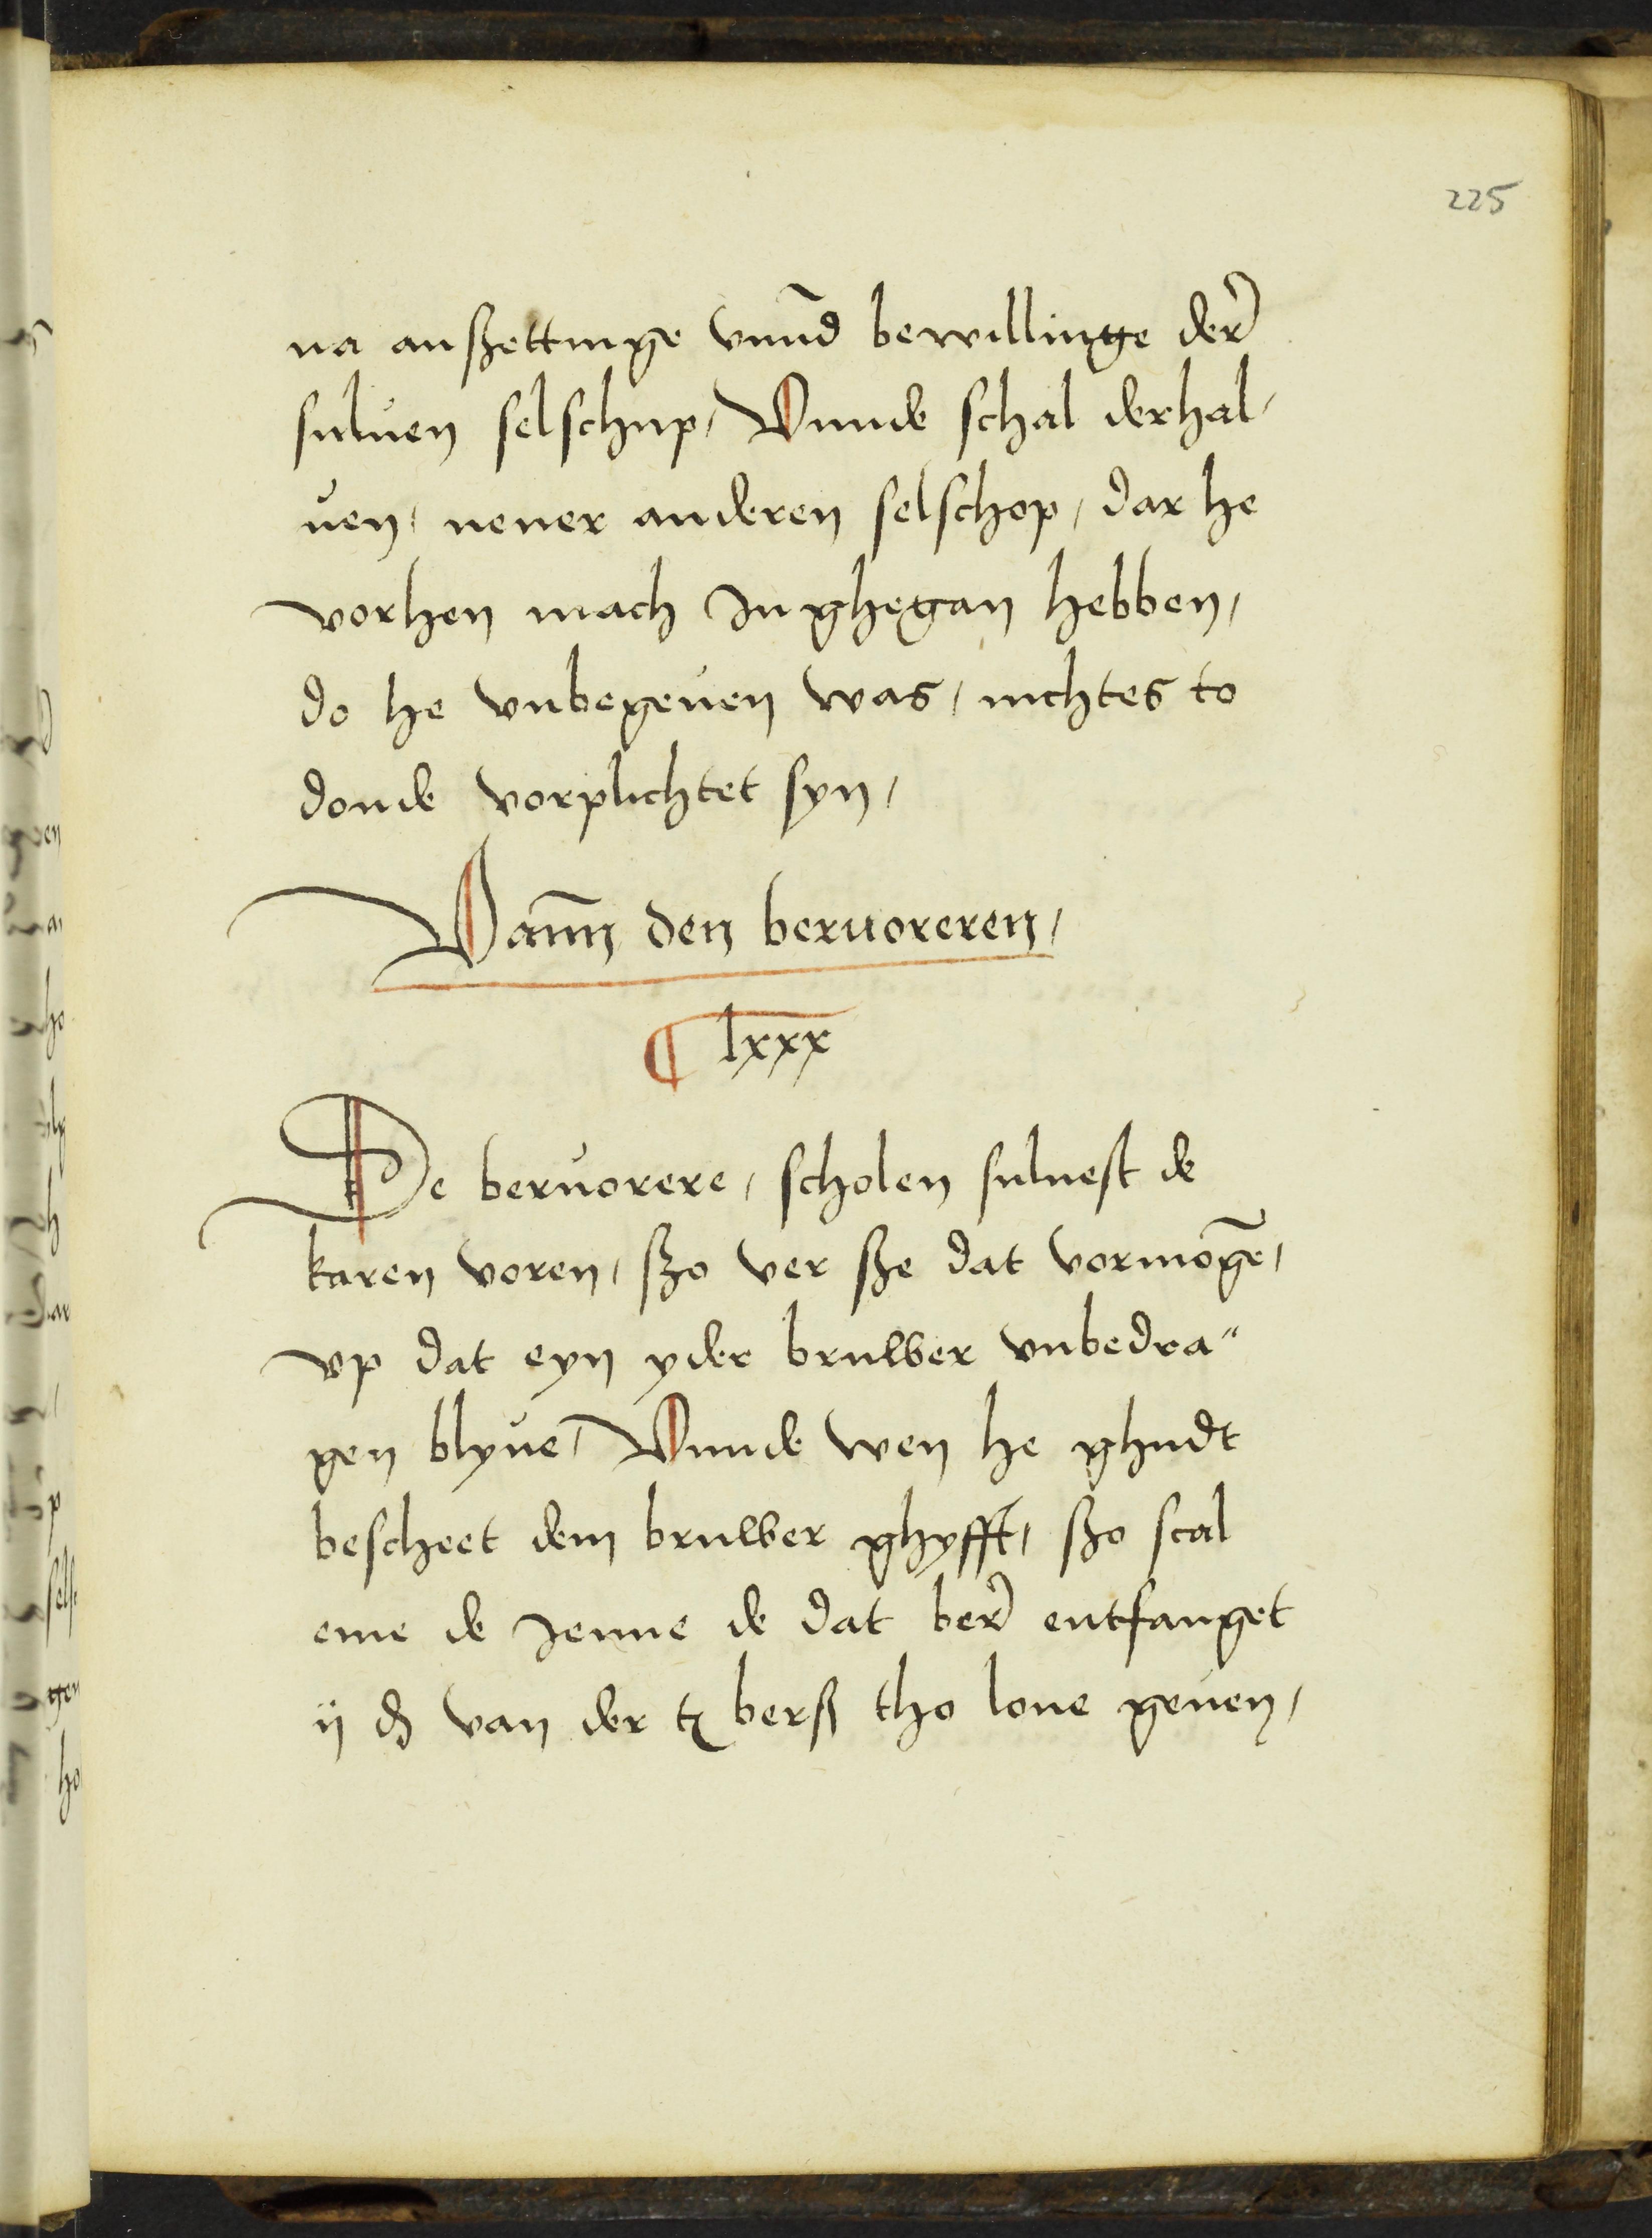 225
na anßettinge vnnd bewillinge der
suluen selschup, Vnnde schal derhal-
uen, nener anderen selschop, dar he
vorhen mach Inghegan hebben,
do he vnbegeuen was, nichtes to
donde vorplichtet syn,
Vann den beruoreren,
¶ lxxx
De beruorere, scholen suluest de
karen voren, ßo ver ße dat vormogē,
vp dat eyn yder bruwer vnbedra"
gen blyue, Vnnde wen he ghudt
bescheet dem bruwer ghyfft, ßo scal
eme de Jenne de dat ber entfanget
ij ₰ van der tz berß tho lone geuen,